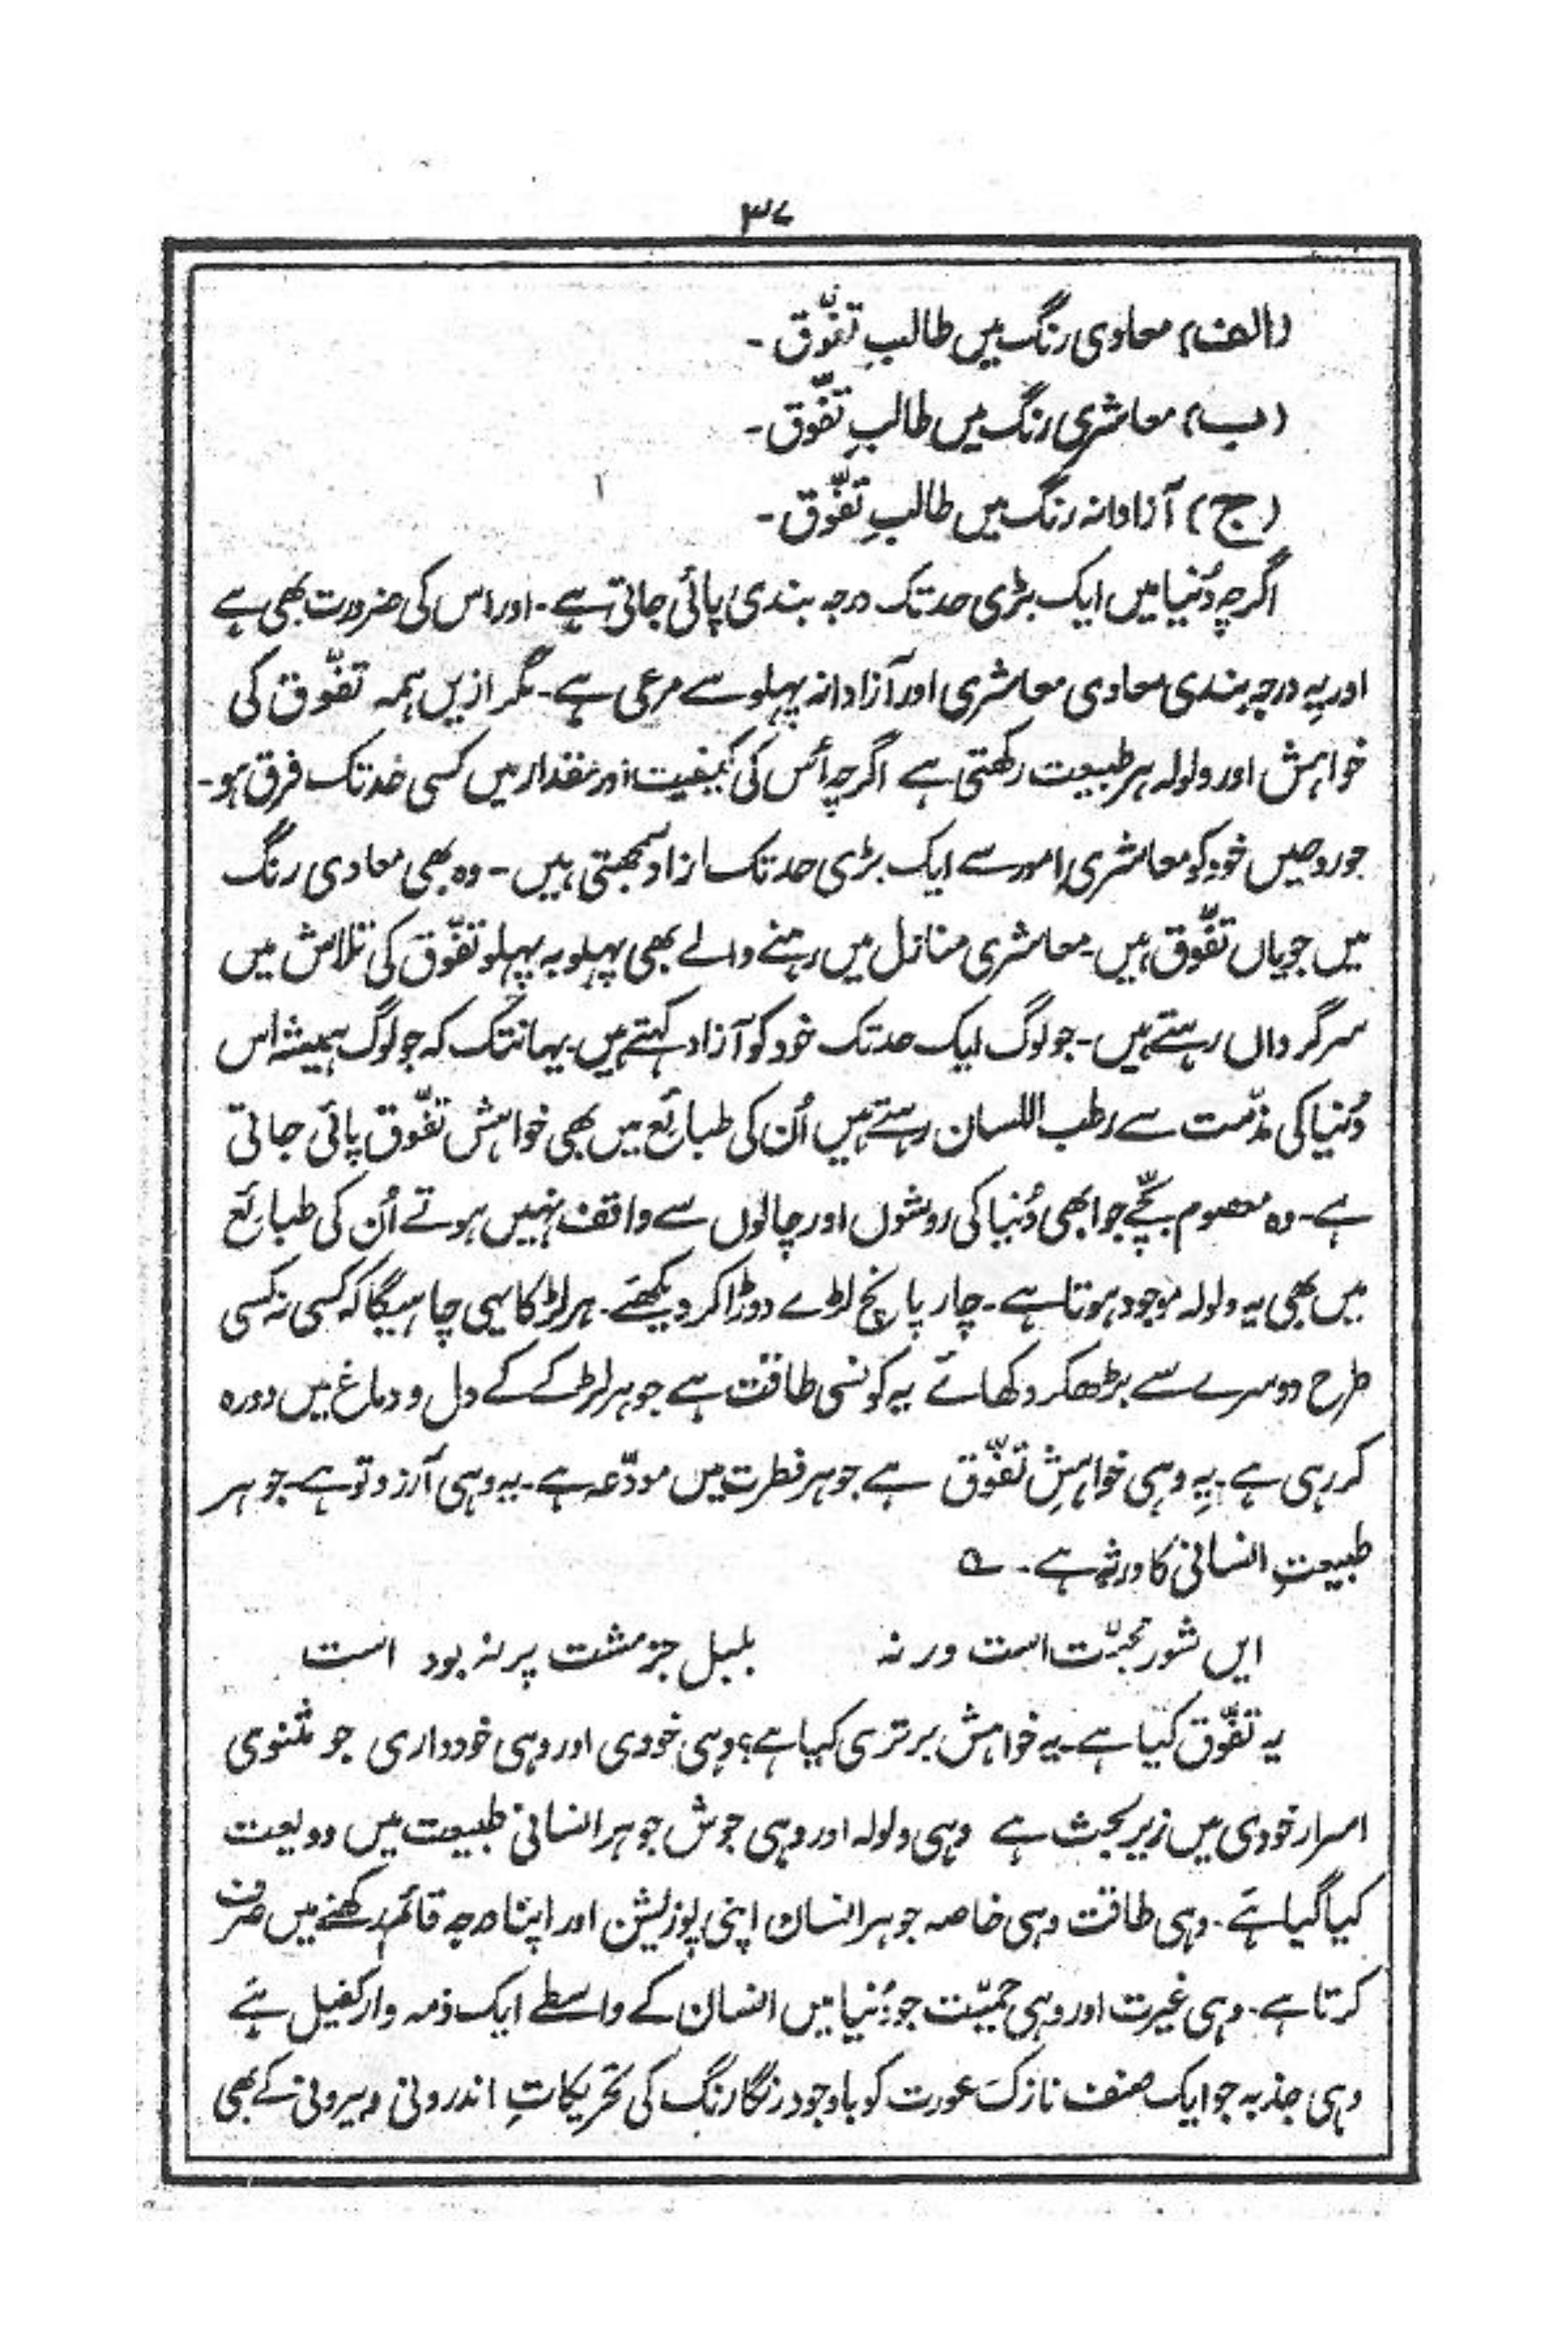 ۳۷
(الف) معاوی رنگ میں طالبِ تفوّق -
(ب) معاشری رنگ میں طالبِ تفوّق -
(ج) آزادانہ رنگ میں طالبِ تفوّق -
اگرچہ دُنیا میں ایک بڑی حد تک درجہ بندی پائی جاتی ہے - اور اس کی ضرورت بھی ہے
اور یہ درجہ بندی معاوی معاشری اور آزادانہ پہلو سے مرعی ہے - مگر ازیں ہمہ تفوّق کی
خواہش اور ولولہ ہر طبیعت رکھتی ہے اگرچہ اُس کی کیفیت اور مقدار میں کسی حد تک فرق ہو -
جو روحیں خود کو معاشری امور سے ایک بڑی حد تک ازاد سمجھتی ہیں - وہ بھی معادی رنگ
میں جویاں تفوّق ہیں - معاشری منازل میں رہنے والے بھی پہلو بہ پہلو تفوّق کی تلاش میں
سرگرداں رہتے ہیں - جو لوگ ایک حد تک خود کو آزاد کہتے ہیں یہانتک کہ جو لوگ ہمیشہ اس
دُنیا کی مذمّت سے رطب اللسان رہتے ہیں اُن کی طبائع میں بھی خواہش تفوّق پائی جاتی
ہے - وہ معصوم بچّے جو ابھی دُنیا کی روشوں اور چالوں سے واقف نہیں ہوتے اُن کی طبائع
میں بھی یہ ولولہ موجود ہوتا ہے - چار پانچ لڑے دوڑا کر دیکھئے - ہر لڑکا یہی چاہیگا کہ کسی نہ کسی
طرح دوسرے سے بڑھکر دکھائے یہ کونسی طاقت ہے جو ہر لڑکے کے دل و دماغ میں دورہ
کر رہی ہے - یہ وہی خواہشِ تفوّق ہے جو ہر فطرت میں مودّعہ ہے - یہ وہی آرزو تو ہے - جو ہر
طبیعتِ انسانی کا ورثہ ہے - ؎
ایں شور محبّت است ورنہ بلبل جز مشت پر نہ بود است
یہ تفوّق کیا ہے - یہ خواہش برتری کیا ہے؟ وہی خودی اور وہی خودداری جو مثنوی
اسرار خودی میں زیر بحث ہے وہی ولولہ اور وہی جوش جو ہر انسانی طبیعت میں ودیعت
کیا گیا ہے - وہی طاقت وہی خاصہ جو ہر انسان اپنی پوزیشن اور اپنا درجہ قائم رکھنے میں صرف
کرتا ہے - وہی غیرت اور وہی حمیّت جو دُنیا میں انسان کے واسطے ایک ذمہ وار کفیل ہے
وہی جذبہ جو ایک صنف نازک عورت کو باوجود رنگا رنگ کی تحریکاتِ اندرونی و بیرونی کے بھی